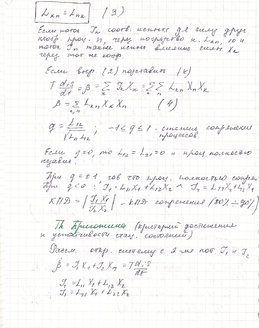 Lₖₙ = Lₙₖ (3)
Если поток Iₙ соотв. испыт. д-я силу друг
необр. проц. n, через посредство к. Lₖₙ, то и
поток Iₙ также испыт. влияние силы Xₖ
через тот же коэф
Если выр (2) подставить (4)
T diS/dt = β = Σ Iₖ Xₖ = ΣΣ Lₖₙ Xₙ Xₖ
β = Σ Lₖₙ Xₖ Xₙ (4)
q = L₁₂/√L₁₁L₂₂ , -1 ≤ q ≤ 1 - степень сопряжения процессов
Если q=0, то L₁₂ = L₂₁ = 0 и проц. полностью
При q = ±1, гов что проц. полностью сопряж
При q < 0 : I₁ = L₁₁X₁ + L₁₂X₂ ^ I₂ = L₂₁X₁ + L₂₂X₂
КПД = |I₂X₂/I₁X₁| - КПД сопряжения (80% ÷ 90%)
Th Пригожина (критерий достижения
и устойчивости стац. состояний)
Рассм. откр. систему с 2-мя пот. I₁ и I₂
β = I₁X₁ + I₂X₂ = T diS/dt
I₁ = L₁₁X₁ + L₁₂X₂
I₂ = L₂₁X₁ + L₂₂X₂